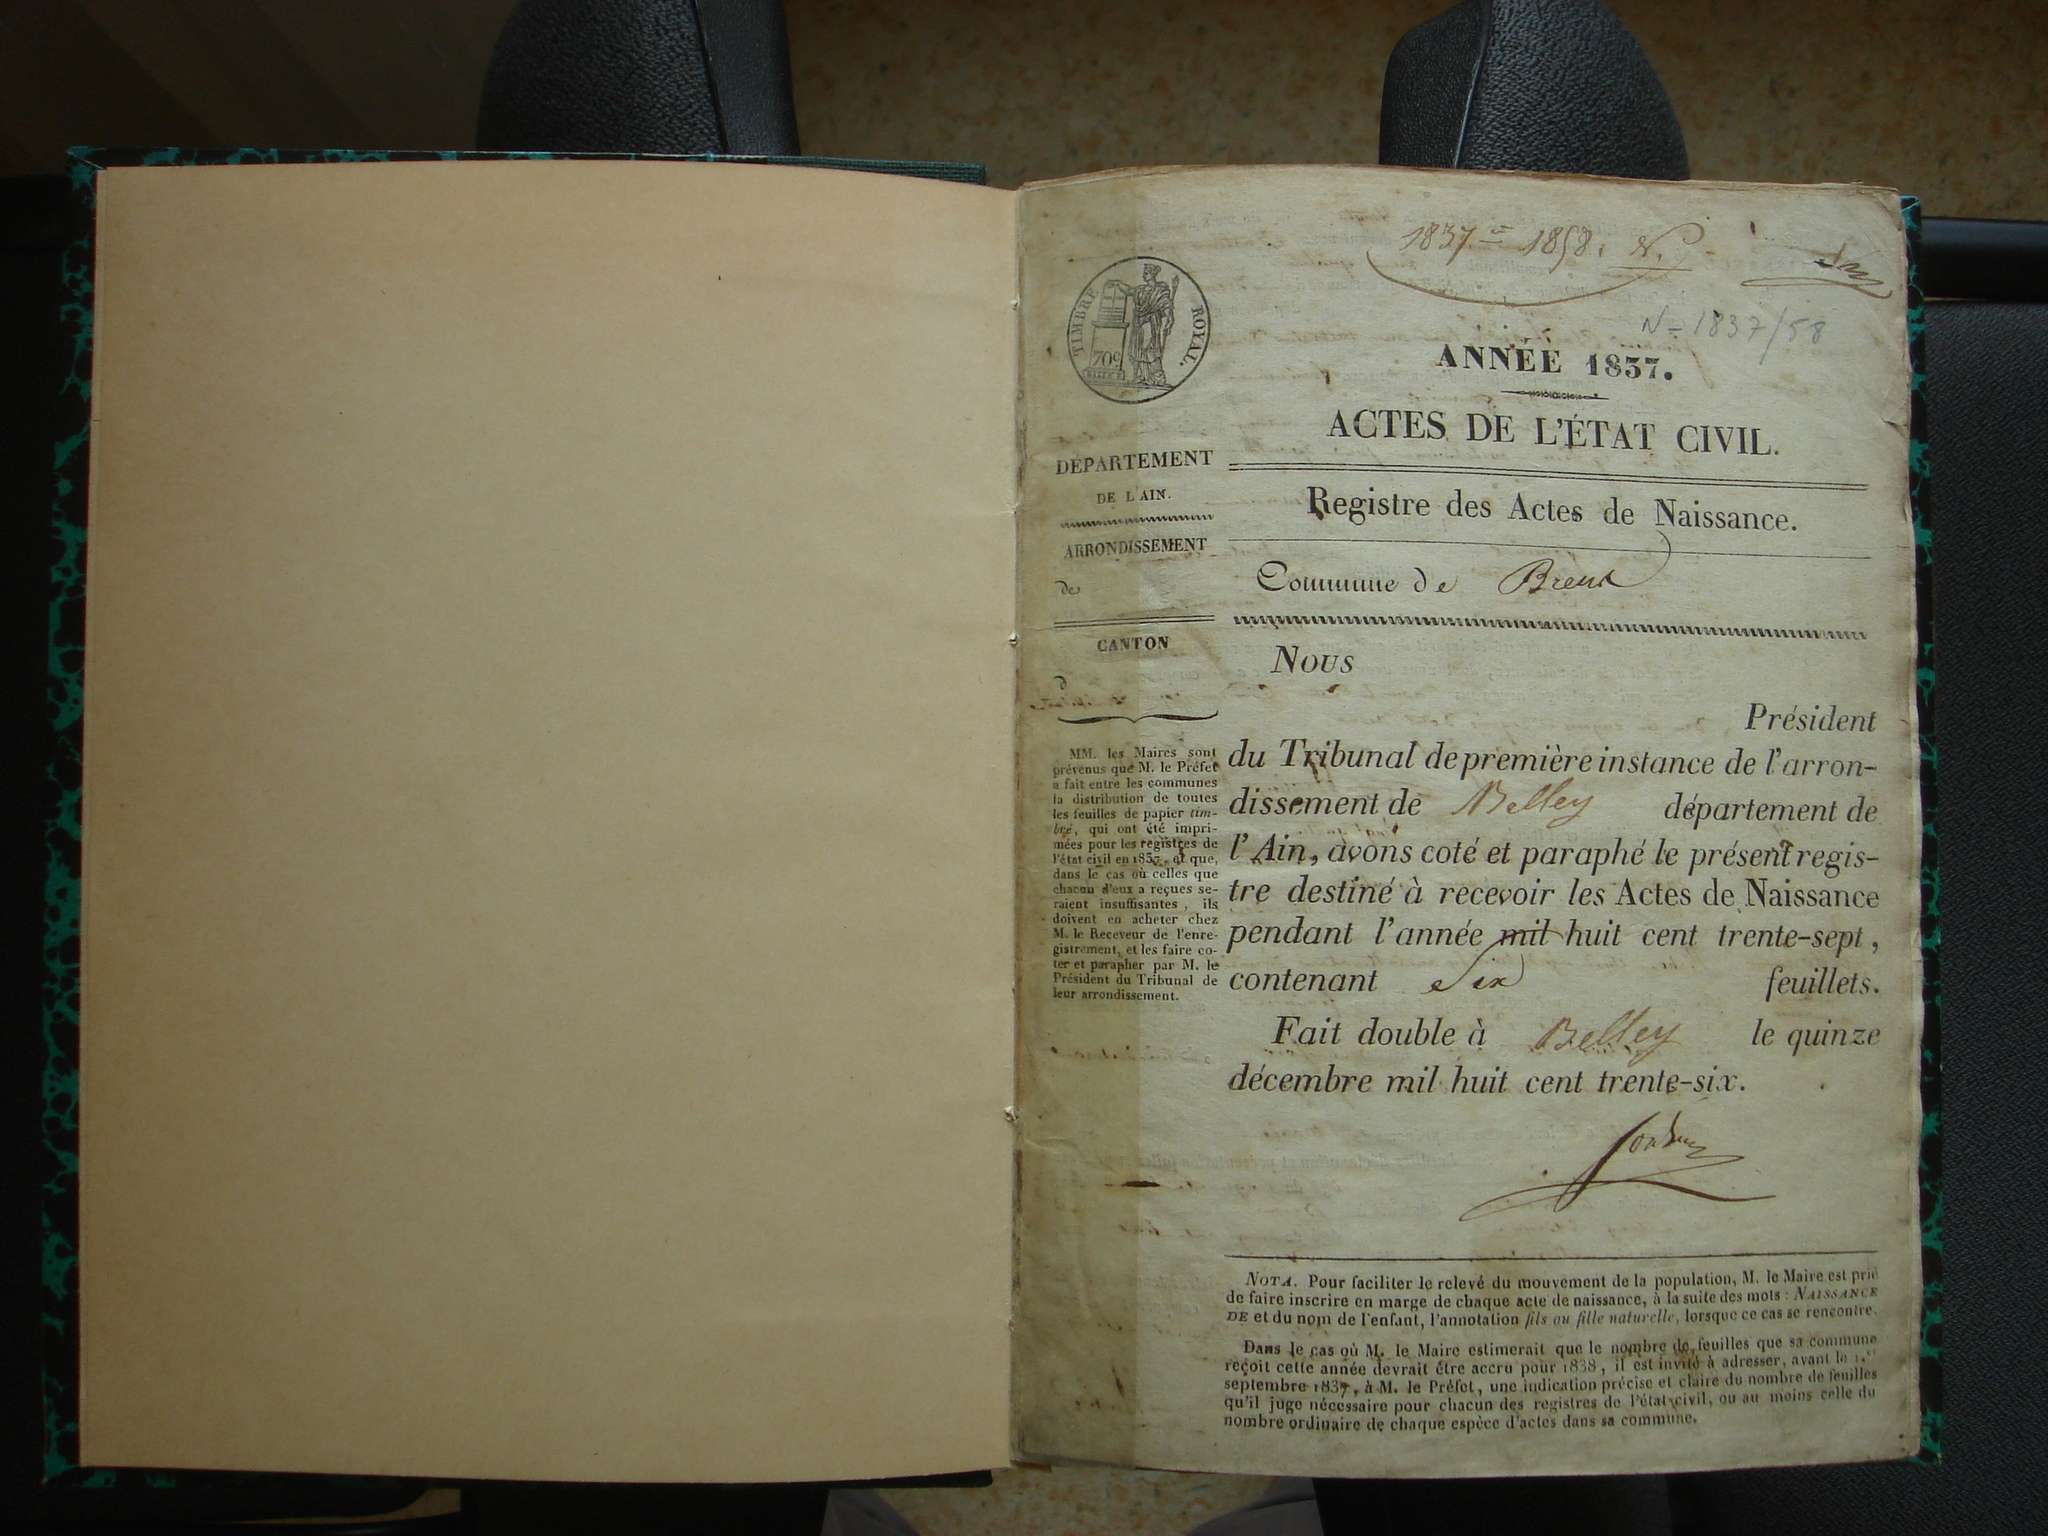 1837 à 1858. N.
N - 1837/58
TIMBRE ROYAL.
70c
ANNÉE 1837.
ACTES DE L'ÉTAT CIVIL.
DÉPARTEMENT
DE L'AIN.
ARRONDISSEMENT
de
CANTON
d
MM. les Maires sont
prévenus que M. le Préfet
a fait entre les communes
la distribution de toutes
les feuilles de papier tim-
bré, qui ont été impri-
mées pour les registres de
l'état civil en 1837, et que,
dans le cas où celles que
chacun d'eux a reçues se-
raient insuffisantes, ils
doivent en acheter chez
M. le Receveur de l'enre-
gistrement, et les faire co-
ter et parapher par M. le
Président du Tribunal de
leur arrondissement.
Registre des Actes de Naissance.
Commune de
NOUS
Président
du Tribunal de première instance de l'arron-
dissement de Belley département de
l'Ain, avons coté et paraphé le présent regis-
tre destiné à recevoir les Actes de Naissance
pendant l'année mil huit cent trente-sept,
contenant six feuillets.
Fait double à Belley le quinze
décembre mil huit cent trente-six.
NOTA. Pour faciliter le relevé du mouvement de la population, M. le Maire est prié
de faire inscrire en marge de chaque acte de naissance, à la suite des mots : NAISSANCE
DE et du nom de l'enfant, l'annotation fils ou fille naturelle, lorsque ce cas se rencontre.
Dans le cas où M. le Maire estimerait que le nombre de feuilles que sa commune
reçoit cette année devrait être accru pour 1838, il est invité à adresser, avant le 1.er
septembre 1837, à M. le Préfet, une indication précise et claire du nombre de feuilles
qu'il juge nécessaire pour chacun des registres de l'état civil, ou au moins celle du
nombre ordinaire de chaque espèce d'actes dans sa commune.